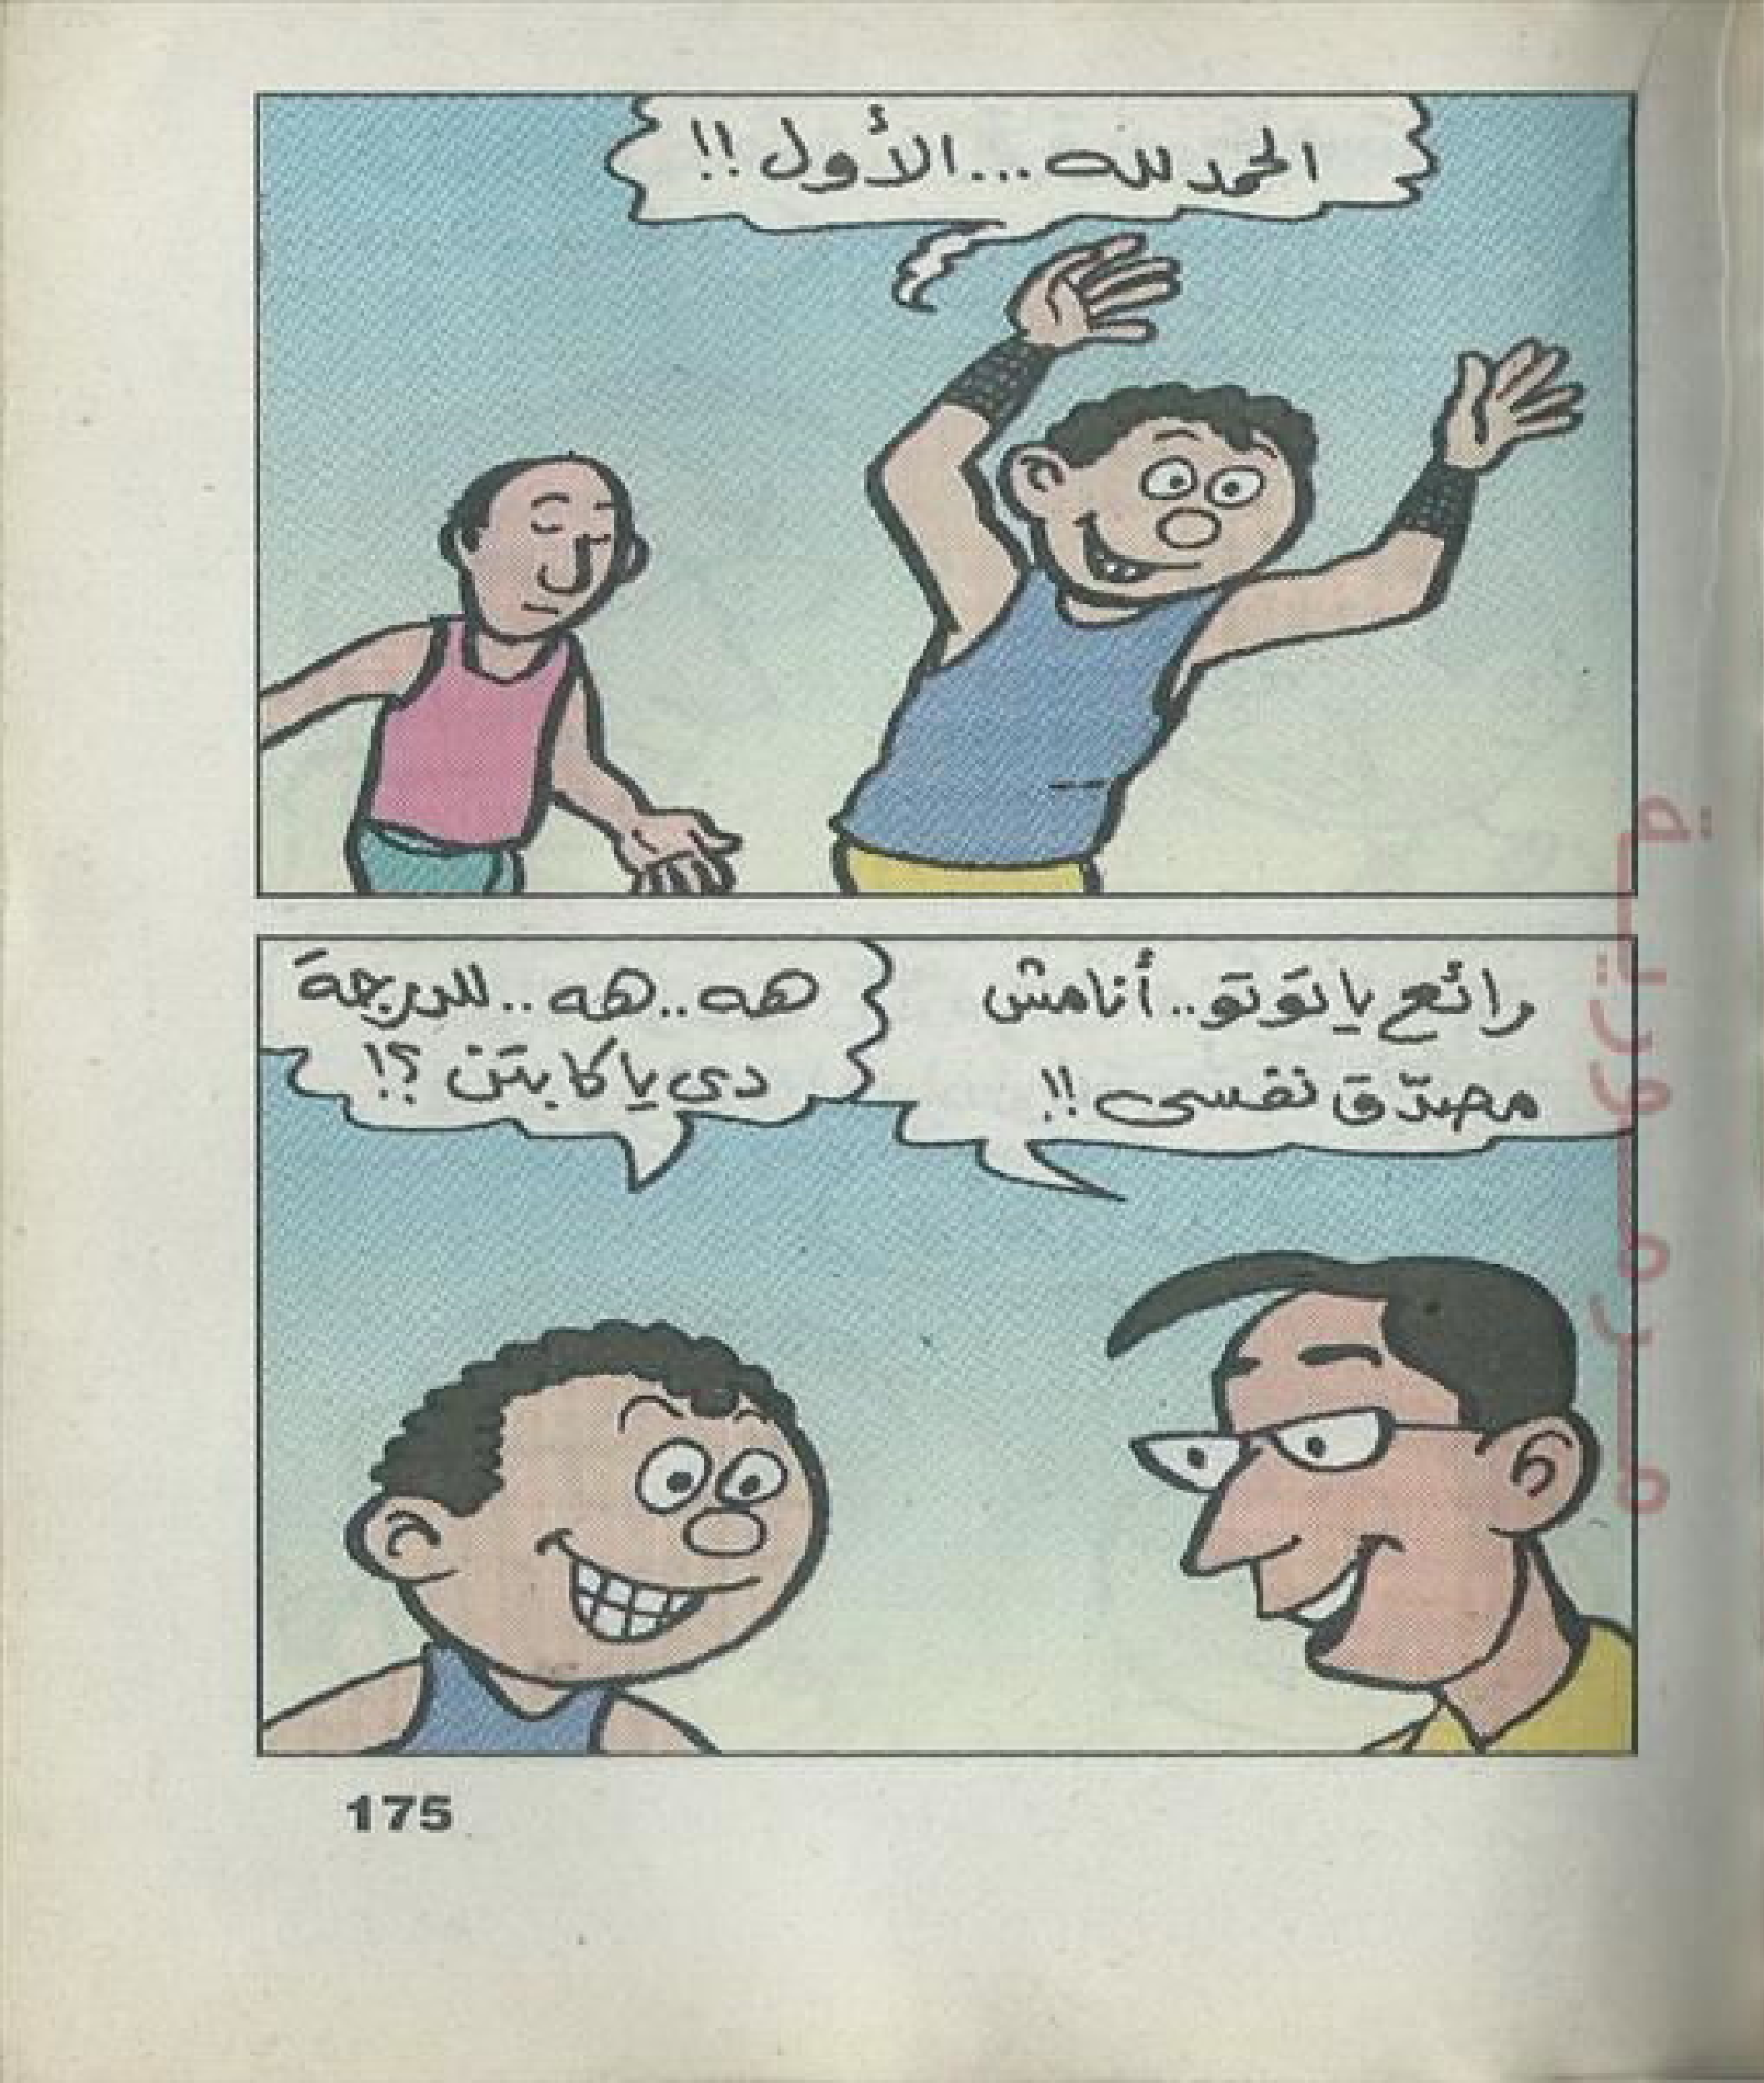 الحمد لله...الأول!!
رائع يا تَوتَو..أنا مش
مصدّق نفسى!!
هه..هه..للدرجة
دى يا كابتن؟!
175